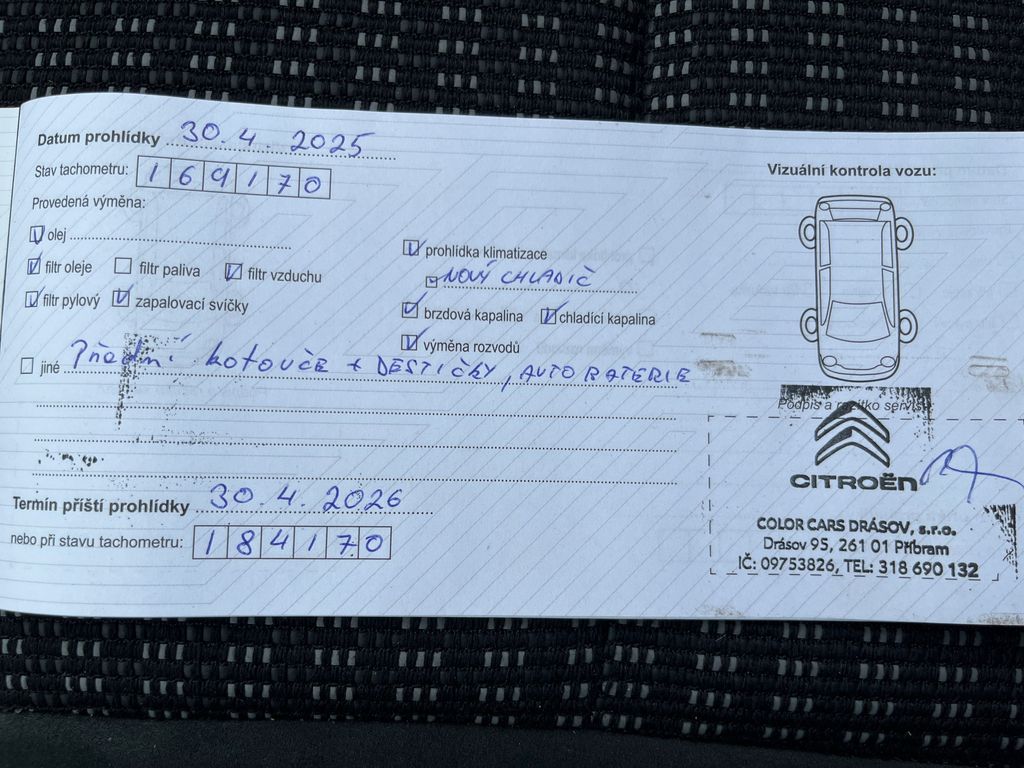 Datum prohlídky 30.4.2025
Stav tachometru: 169170
Provedená výměna:
olej
filtr oleje filtr paliva filtr vzduchu
filtr pylový zapalovací svíčky
prohlídka klimatizace
NOVÝ CHLADIČ
brzdová kapalina chladící kapalina
výměna rozvodů
jiné Přední kotouče + DESTIČKY, AUTOBATERIE
Termín příští prohlídky 30.4.2026
nebo při stavu tachometru: 184170
Vizuální kontrola vozu:
Podpis a razítko servisu
CITROËN
COLOR CARS DRÁSOV, s.r.o.
Drásov 95, 261 01 Příbram
IČ: 09753826, TEL: 318 690 132